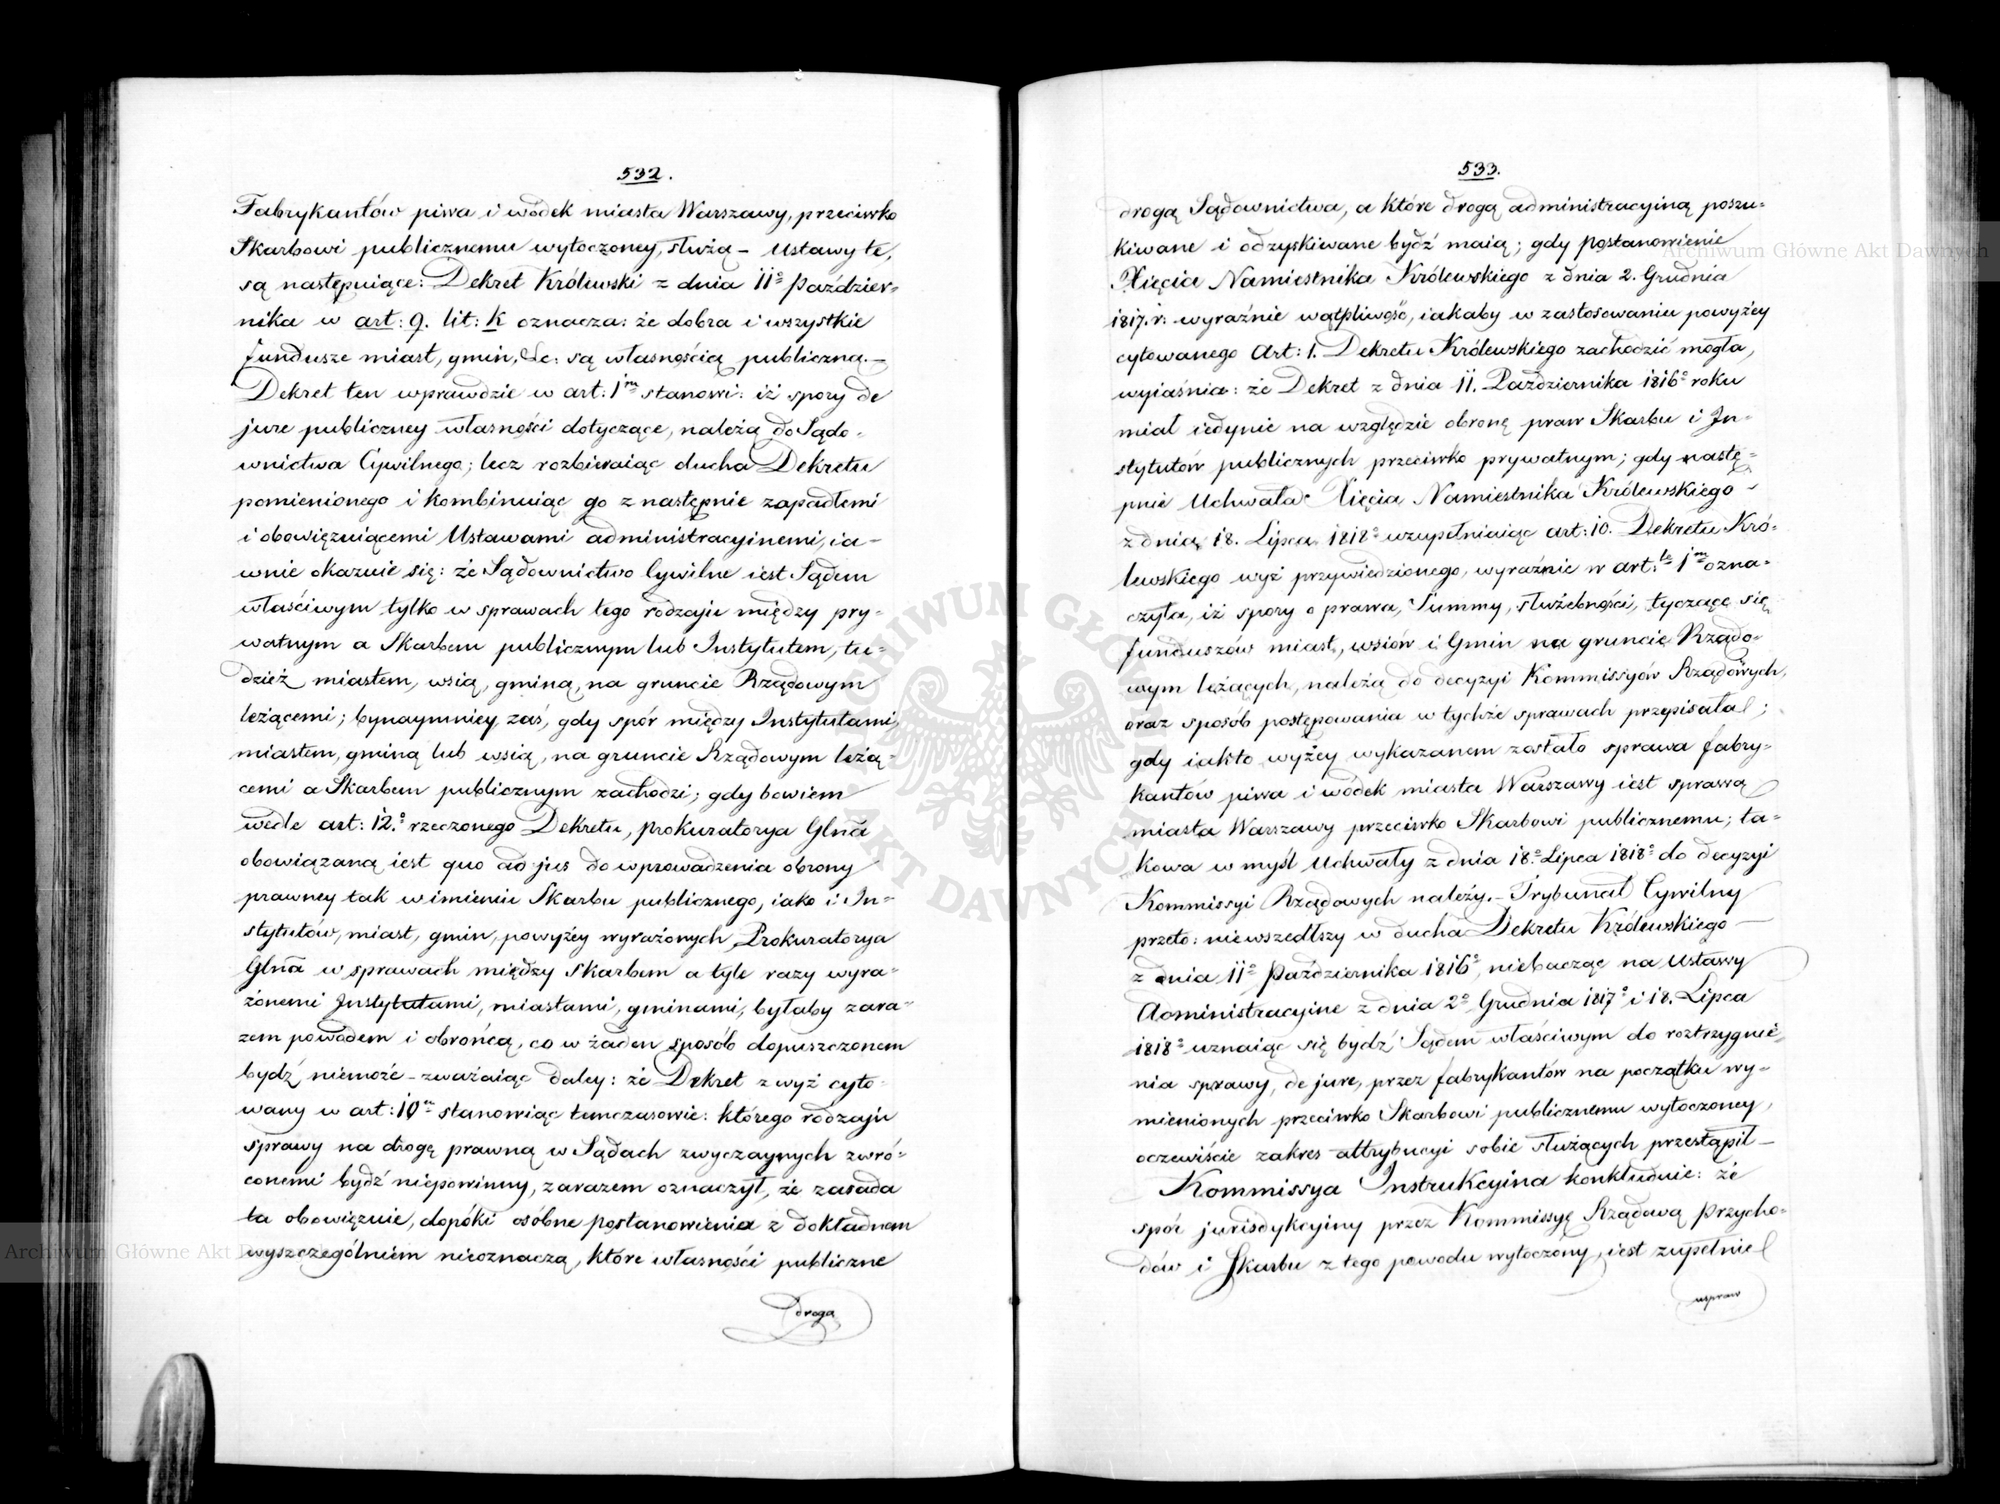 532.
Fabrykantów piwa i wódek miasta Warszawy, przeciwko
Skarbowi publicznemu wytoczoney, służą – Ustawy te,
są następuiące: Dekret Królewski z dnia 11º Paździer-
nika w art: 9. lit: K oznacza: że dobra i wszystkie
fundusze miast, gmin, &c: są własnością publiczną. –
Dekret ten wprawdzie w art: 1m stanowi: iż spory de
jure publiczney własności dotyczące, należą do Sądo-
wnictwa Cywilnego; lecz rozbieraiąc ducha Dekretu
pomienionego i kombinuiąc go z następnie zapadłemi
i obowięzuiącemi Ustawami administracyinemi, ia-
wnie okazuie się: że Sądownictwo Cywilne iest Sądem
właściwym tylko w sprawach tego rodzaju między pry-
watnym a Skarbem publicznym lub Instytutem, tu-
dzież miastem, wsią, gminą, na gruncie Rządowym
leżącemi; bynaymniey zaś, gdy spór między Instytutami,
miastem, gminą lub wsią, na gruncie Rządowym leżą-
cemi a Skarbem publicznym zachodzi; gdy bowiem
wedle art: 12.º rzeczonego Dekretu, Prokuratorya Glna
obowiązaną iest quo ad jus do wprowadzenia obrony
prawney tak w imieniu Skarbu publicznego, iako i In-
stytutów, miast, gmin, powyżey wyrażonych, Prokuratorya
Glna w sprawach między Skarbem a tyle razy wyra-
żonemi Instytutami, miastami, gminami, byłaby zara-
zem powodem i obrońcą, co w żaden sposób dopuszczonem
bydź niemoże – zważaiąc daley: że Dekret z wyż cyto-
wany w art: 10m stanowiąc tumczasowie: którego rodzaju
sprawy na drogę prawną w Sądach zwyczaynych zwró-
conemi bydź niepowinny, zarazem oznaczył, że zasada
ta obowięzuie, dopóki osóbne postanowienia z dokładnem
wyszczególniem nieoznaczą, które własności publiczne
drogą
533.
drogą Sądownictwa, a które drogą administracyiną poszu-
kiwane i odzyskiwane bydź maią; gdy postanowienie
Xięcia Namiestnika Królewskiego z dnia 2. Grudnia
1817. r: wyraźnie wątpliwość, iakaby w zastosowaniu powyżey
cytowanego Art: 1. Dekretu Królewskiego zachodzić mogła,
wyiaśnia: że Dekret z dnia 11. Października 1816º roku
miał iedynie na względzie obronę praw Skarbu i In-
stytutów publicznych przeciwko prywatnym; gdy nastę-
pnie Uchwała Xięcia Namiestnika Królewskiego –
z dnia 18. Lipca 1818º uzupełniaiąc art: 10. Dekretu Kró-
lewskiego wyż przywiedzionego, wyraźnie w art:le 1m ozna-
czyła, iż spory o prawa, Summy, służebności, tyczące się
funduszów miast, wsiów i Gmin na gruncie Rządo-
wym leżących, należą do decyzyi Kommissyów Rządowych,
oraz sposób postępowania w tychże sprawach przepisała;
gdy iakto wyżey wykazanem zostało sprawa fabry-
kantów piwa i wódek miasta Warszawy iest sprawą
miasta Warszawy przeciwko Skarbowi publicznemu; ta-
kowa w myśl Uchwały z dnia 18.º Lipca 1818º do decyzyi
Kommissyi Rządowych należy. – Trybunał Cywilny
przeto: niewszedłszy w ducha Dekretu Królewskiego –
z dnia 11º Października 1816º, niebacząc na Ustawy
Administracyine z dnia 2º Grudnia 1817º i 18. Lipca
1818º uznaiąc się bydź Sądem właściwym do roztrzygnie-
nia sprawy, de jure, przez fabrykantów na początku wy-
mienionych przeciwko Skarbowi publicznemu wytoczoney,
oczewiście zakres attrybucyi sobie służących przestąpił –
Kommissya Instrukcyina konkluduie: że
spór jurisdykcyiny przez Kommissyę Rządową Przycho-
dów i Skarbu z tego powodu wytoczony, iest zupełnie
uspraw
Archiwum Główne Akt Dawnych
Archiwum Główne Akt Dawnych
ARCHIWUM GŁÓWNE AKT DAWNYCH